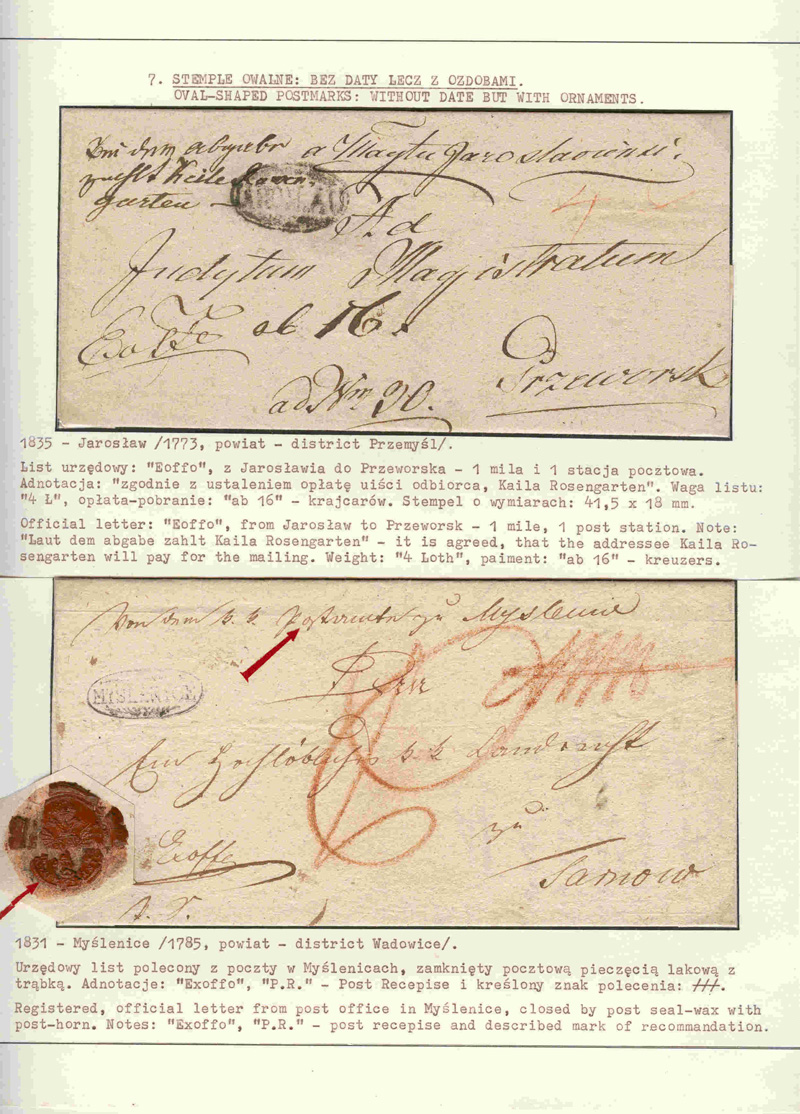 7. STEMPLE OWALNE: BEZ DATY LECZ Z OZDOBAMI.
OVAL-SHAPED POSTMARKS: WITHOUT DATE BUT WITH ORNAMENTS.
a Magtu Jaroslaviensi.
garten
4
Ad
Judytum Magistratum
ab 16.
Przeworsk
ad Nrm 90.
1835 - Jarosław /1773, powiat - district Przemyśl/.
List urzędowy: "Eoffo", z Jarosławia do Przeworska - 1 mila i 1 stacja pocztowa.
Adnotacja: "zgodnie z ustaleniem opłatę uiści odbiorca, Kaila Rosengarten". Waga listu:
"4 Ł", opłata-pobranie: "ab 16" - krajcarów. Stempel o wymiarach: 41,5 x 18 mm.
Official letter: "Eoffo", from Jarosław to Przeworsk - 1 mile, 1 post station. Note:
"Laut dem abgabe zahlt Kaila Rosengarten" - it is agreed, that the addressee Kaila Ro-
sengarten will pay for the mailing. Weight: "4 Loth", paiment: "ab 16" - kreuzers.
Von dem k. k. Postamte zu Myslenice
MYSLENICE
Ein Hochlöbliches k k Landrecht
zu
Exoffo
Tarnow
1831 - Myślenice /1785, powiat - district Wadowice/.
Urzędowy list polecony z poczty w Myślenicach, zamknięty pocztową pieczęcią lakową z
trąbką. Adnotacje: "Exoffo", "P.R." - Post Recepise i kreślony znak polecenia: ///.
Registered, official letter from post office in Myślenice, closed by post seal-wax with
post-horn. Notes: "Exoffo", "P.R." - post recepise and described mark of recommandation.